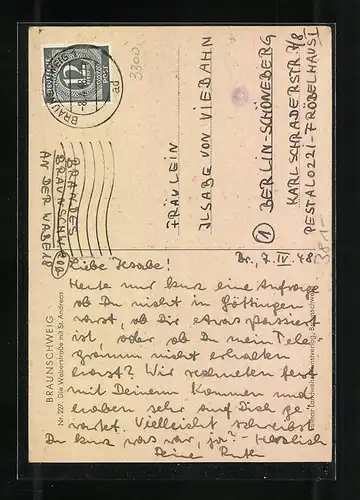 DEUTSCHE POST
12
BRAUNSCHWEIG
ad
3300
BRANDES
BRAUNSCHWEIG
AN DER WABE 18
FRÄULEIN
ILSABE VON VIEBAHN
① BERLIN-SCHÖNEBERG
KARL SCHRADERSTR. 7/8
PESTALOZZI-FRÖBELHAUS I
38.-
Br., 7. IV. 48
Liebe Ilsabe!
Heute nur kurz eine Anfrage
ob Du nicht in Göttingen
warst, ob Dir etwas passiert
ist, oder ob Du mein Tele-
gramm nicht erhalten
hast? Wir rechneten fest
mit Deinem Kommen und
haben sehr auf Dich ge-
wartet. Vielleicht schreibst
Du kurz was war, ja? - Herzlich
Deine Ruth
BRAUNSCHWEIG
Nr. 227. Die Weberstraße mit St. Andreas